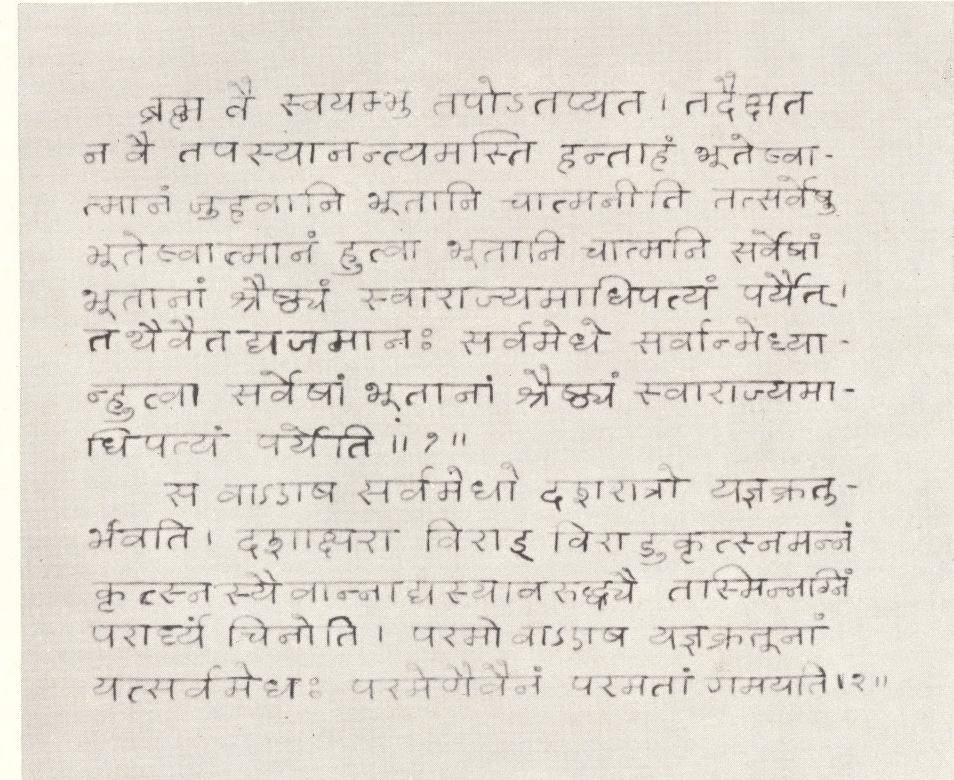 ब्रह्म वै स्वयम्भु तपोऽतप्यत । तदैक्षत
न वै तपस्यानन्त्यमस्ति हन्ताहं भूतेष्वा-
त्मानं जुहवानि भूतानि चात्मनीति तत्सर्वेषु
भूतेष्वात्मानं हुत्वा भूतानि चात्मनि सर्वेषां
भूतानां श्रैष्ठ्यं स्वाराज्यमाधिपत्यं पर्यैत् ।
तथैवैतद्यजमानः सर्वमेधे सर्वान्मेध्या-
न्हुत्वा सर्वेषां भूतानां श्रैष्ठ्यं स्वाराज्यमा-
धिपत्यं पर्येति ॥ १ ॥
स वाऽएष सर्वमेधो दशरात्रो यज्ञक्रतु-
र्भवति । दशाक्षरा विराड् विराडु कृत्स्नमन्नं
कृत्स्नस्यैवान्नाद्यस्यावरुद्ध्यै तस्मिन्नग्निं
परार्ध्यं चिनोति । परमो वाऽएष यज्ञक्रतूनां
यत्सर्वमेधः परमेणैवैनं परमतां गमयति ॥ २ ॥